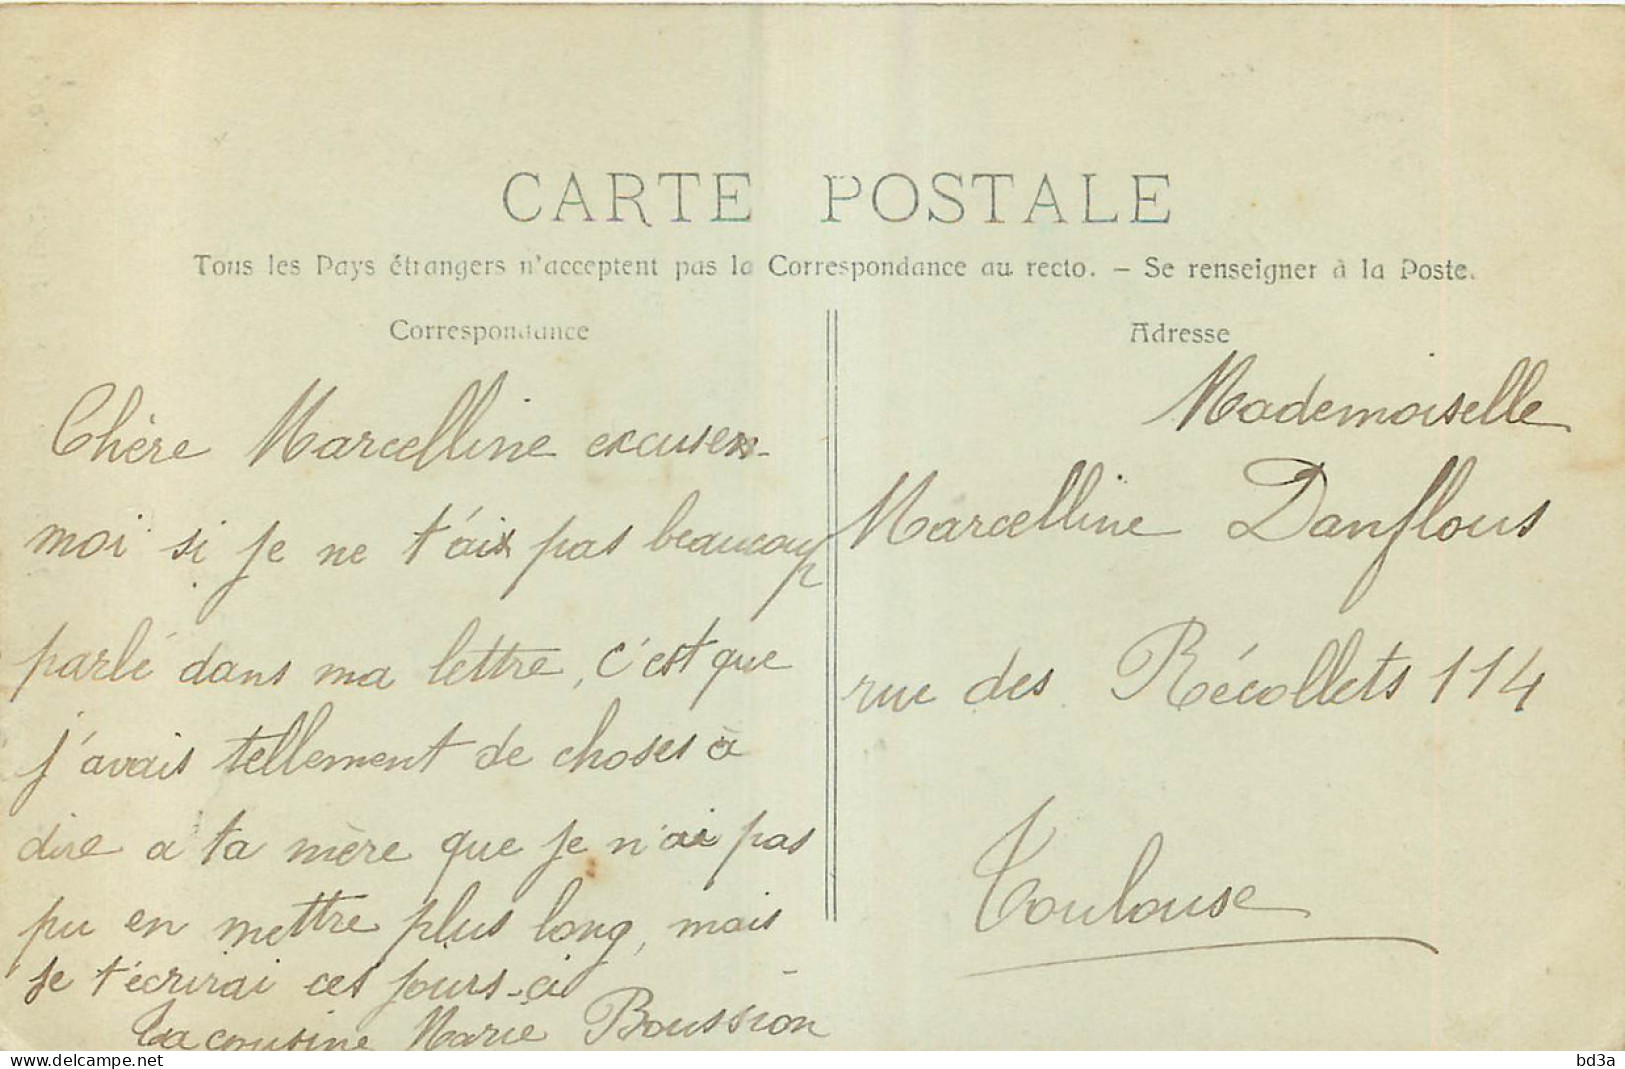 CARTE POSTALE
Tous les Pays étrangers n'acceptent pas la Correspondance au recto. – Se renseigner à la Poste.
Correspondance
Chère Marcelline excuse-
moi si je ne t'ai pas beaucoup
parlé dans ma lettre, c'est que
j'avais tellement de choses à
dire a ta mère que je n'ai pas
pu en mettre plus long, mais
je t'écrirai ces jours-ci
Ta cousine Marie Boussion
Adresse
Mademoiselle
Marcelline Danflous
rue des Récollets 114
Toulouse
www.delcampe.net
bd3a